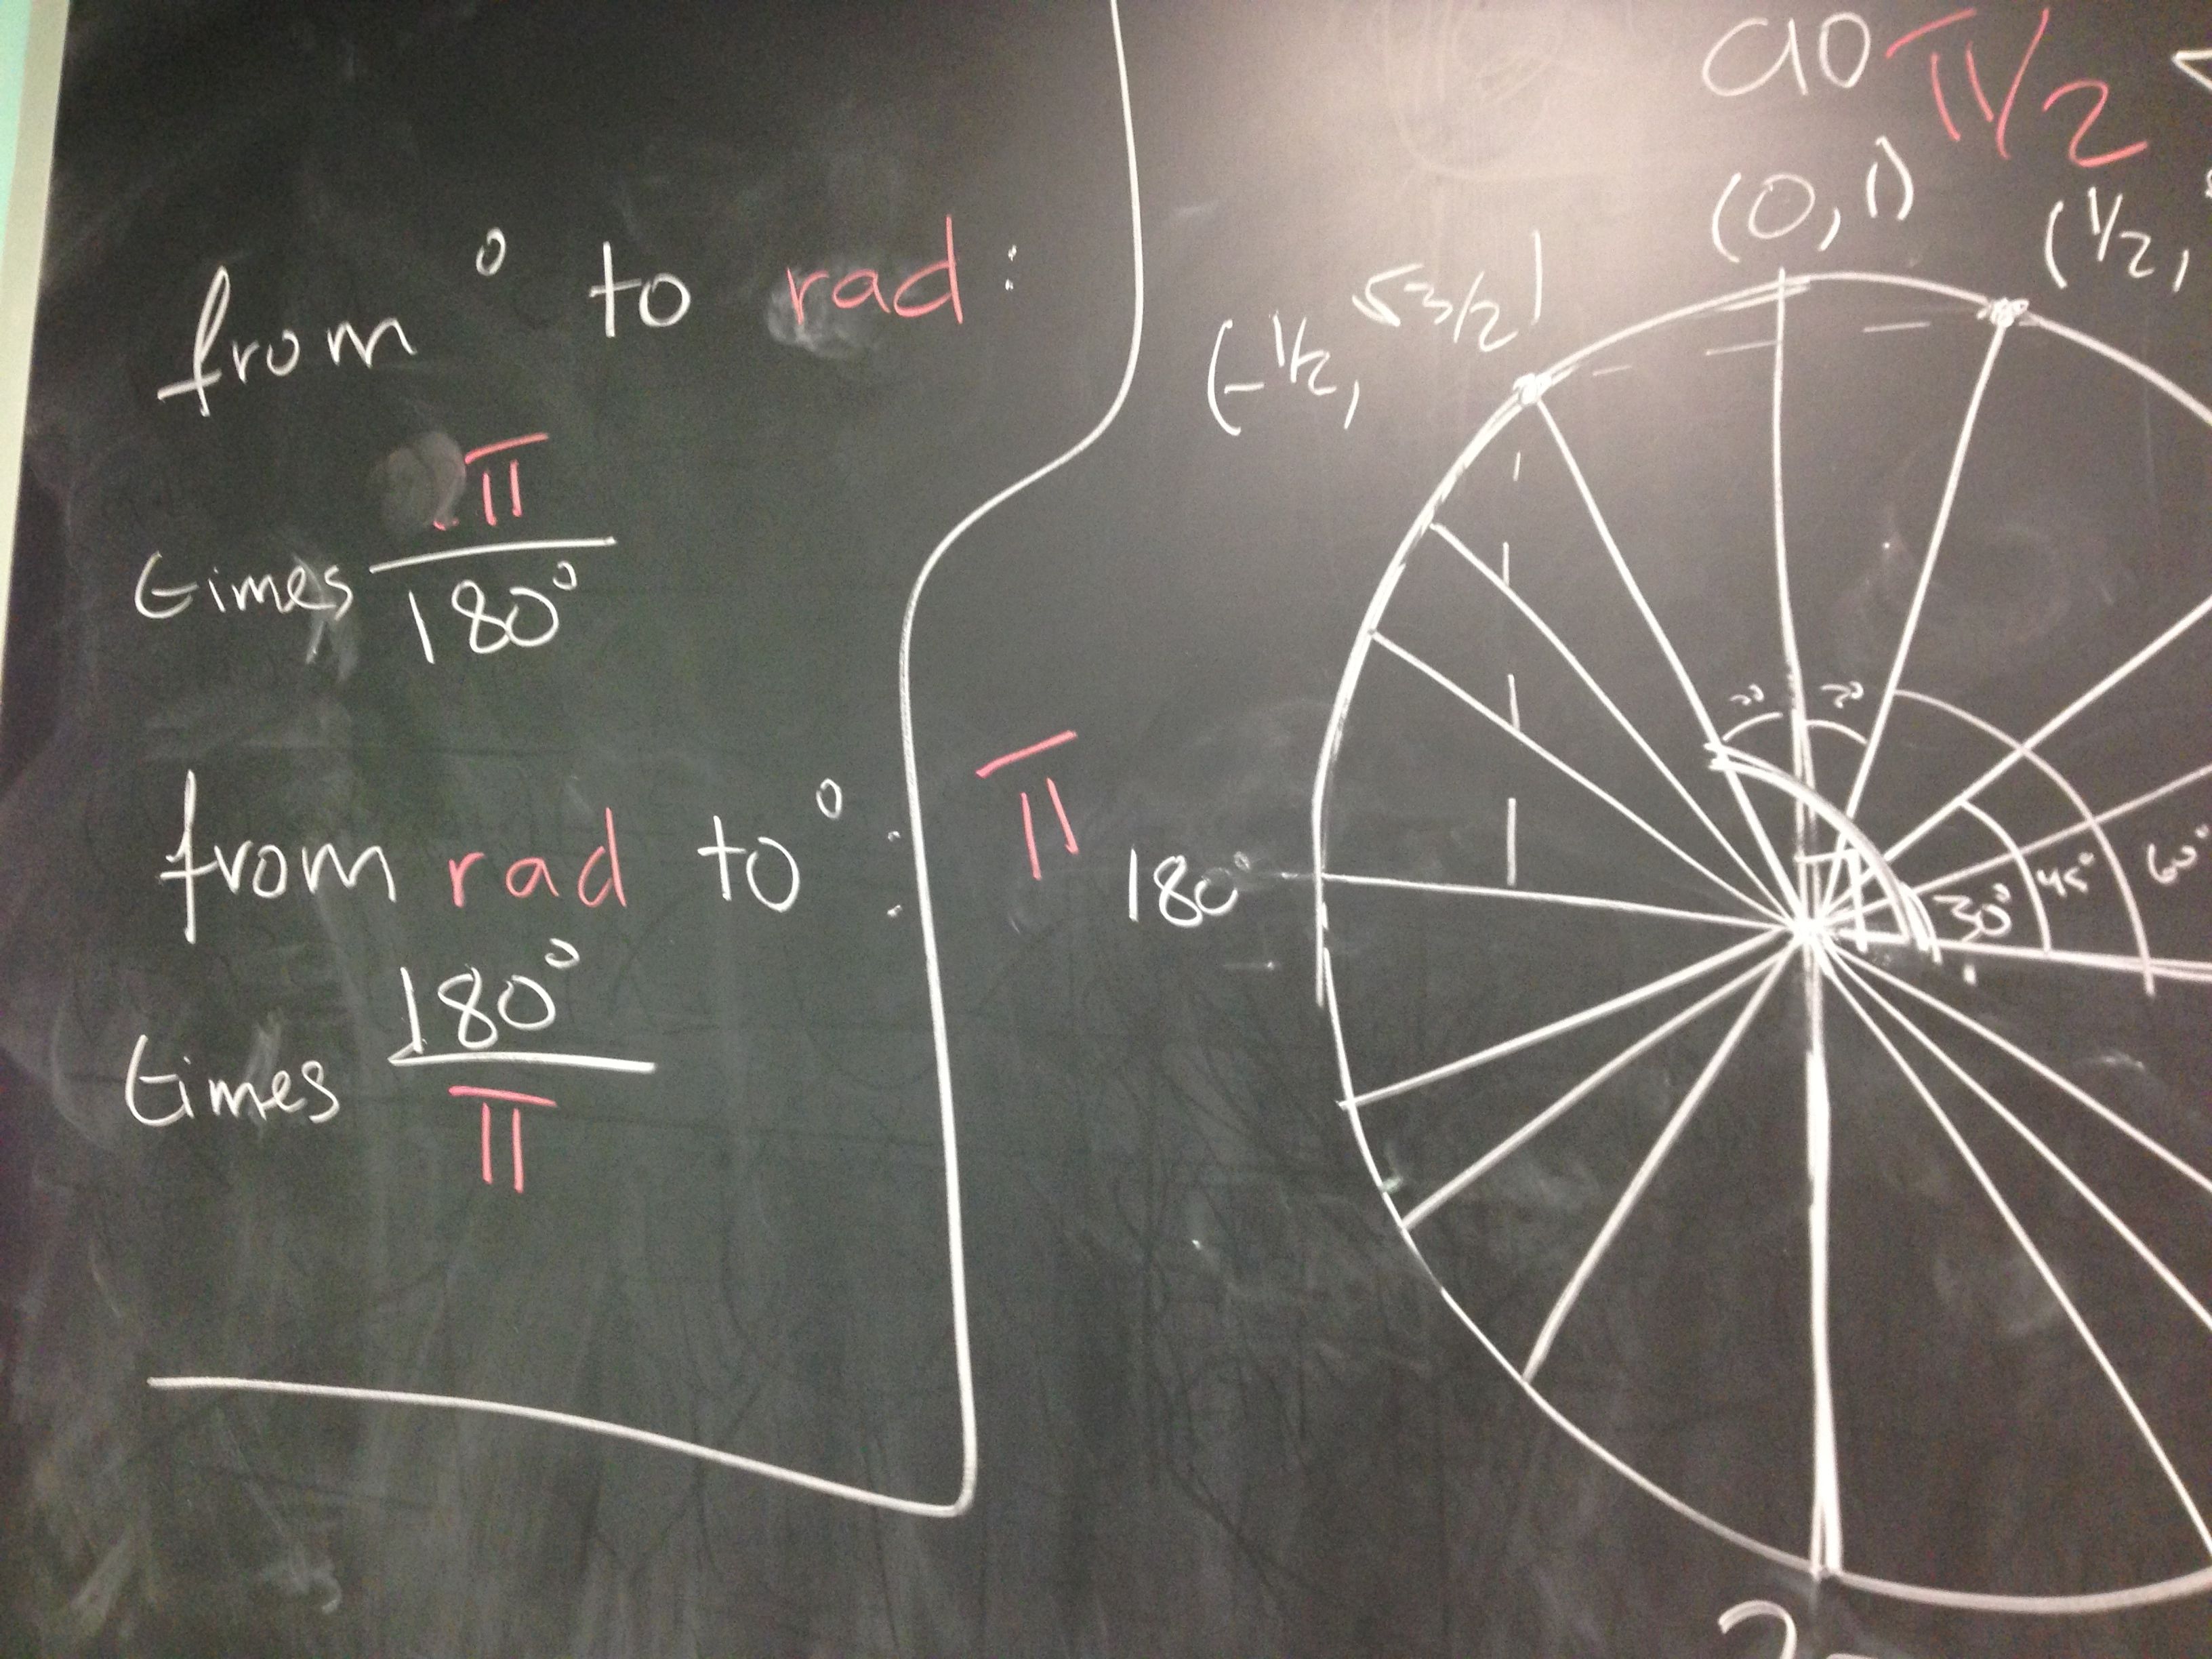 from ° to rad:
times π/180°
from rad to °:
times 180°/π
90 π/2
(0,1)
(1/2,
(-1/2, √3/2)
π
180°
30°
45°
60°